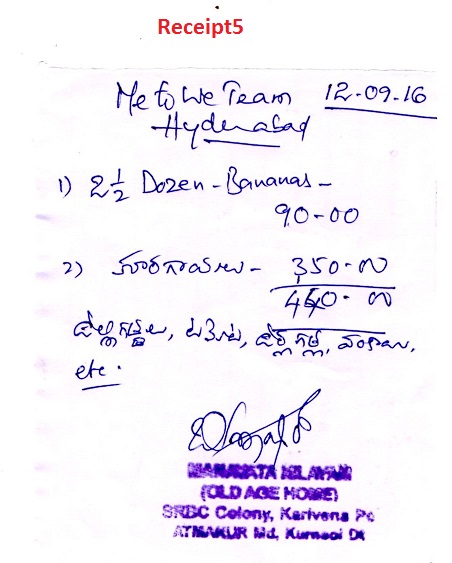 Receipt5
Me to We Team 12-09-16
Hyderabad
1) 2 1/2 Dozen - Bananas -
90-00
2) కూరగాయలు - 350-00
440-00
ఉల్లిగడ్డలు, టమోట, వంకాయ,
etc.
MANAVATA NILAYAM
(OLD AGE HOME)
SRBC Colony, Karivena Po
ATMAKUR Md, Kurnool Dt